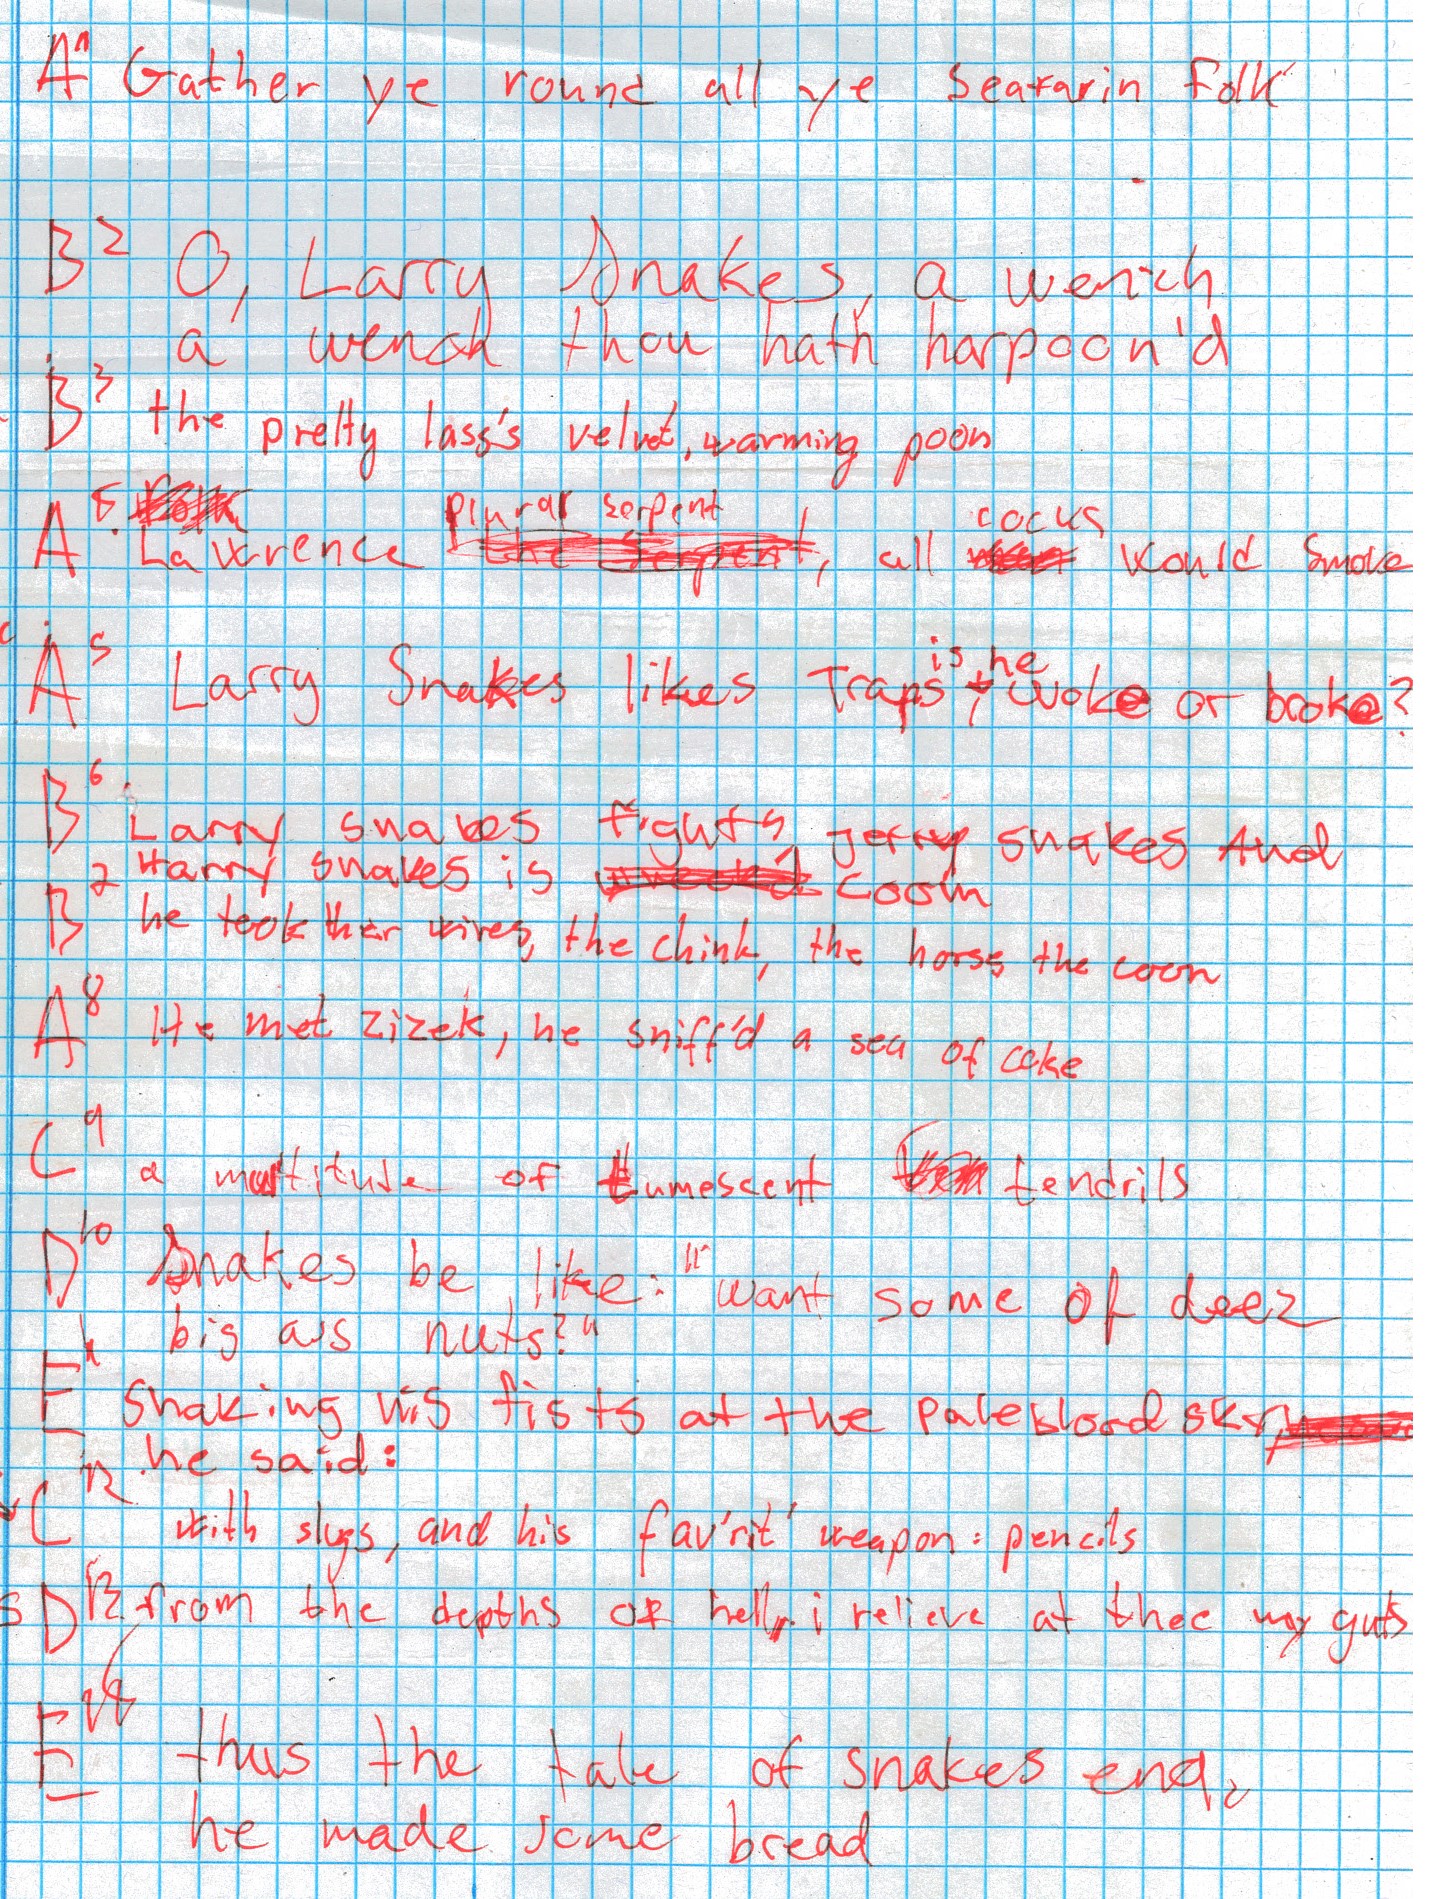 A1 Gather ye round all ye Seafarin Folk
B2 O, Larry Snakes, a wench
a wench thou hath harpoon'd
B3 the pretty lass's velvet, warming poon
plural serpent cocks
A Lawrence the serpent, all would smoke
is he
A5 Larry Snakes likes Traps, woke or broke?
B6 Larry snakes fights Jerry snakes And
Harry snakes is coom
B7 he took their wives, the chink, the horse, the coon
A8 He met Zizek, he sniff'd a sea of coke
C9 a multitude of tumescent tendrils
D10 Snakes be like: "want some of deez
big ass nuts?"
E11 Shaking his fists at the pale blood sky,
he said:
C12 with slugs, and his fav'rit' weapon: pencils
D13 from the depths of hell, i relieve at thee my guts
E14 thus the tale of snakes end,
he made some bread